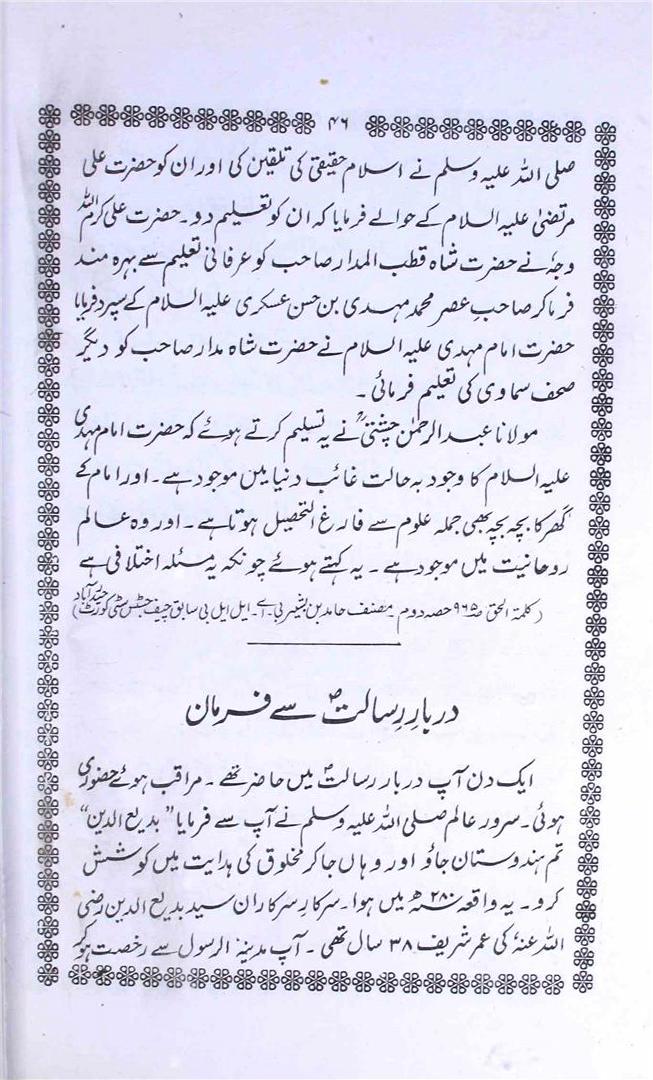 ۴۶
صلی اللہ علیہ وسلم نے اسلام حقیقی کی تلقین کی اور ان کو حضرت علی
مرتضیٰ علیہ السلام کے حوالے فرمایا کہ ان کو تعلیم دو۔ حضرت علی کرم اللہ
وجہٗ نے حضرت شاہ قطب المدار صاحب کو عرفانی تعلیم سے بہرہ مند
فرما کر صاحبِ عصر محمد مہدی بن حسن عسکری علیہ السلام کے سپرد فرمایا
حضرت امام مہدی علیہ السلام نے حضرت شاہ مدار صاحب کو دیگر
صحف سماوی کی تعلیم فرمائی۔
مولانا عبدالرحمٰن چشتیؒ نے یہ تسلیم کرتے ہوئے کہ حضرت امام مہدی
علیہ السلام کا وجود بہ حالت غائب دنیا میں موجود ہے۔ اور امام کے
گھر کا بچہ بچہ بھی جملہ علوم سے فارغ التحصیل ہوتا ہے۔ اور وہ عالم
روحانیت میں موجود ہے۔ یہ کہتے ہوئے چونکہ یہ مسئلہ اختلافی ہے
(کلمۃ الحق صہ ۹۶۵ حصہ دوم۔ مصنف حامد بن بشیر بی۔اے۔ ایل ایل بی سابق چیف جسٹس سٹی کورٹ حیدرآباد)
دربارِ رسالتؐ سے فرمان
ایک دن آپ دربار رسالتؐ میں حاضر تھے۔ مراقب ہوئے حضوری
ہوئی۔ سرور عالم صلی اللہ علیہ وسلم نے آپ سے فرمایا "بدیع الدین"
تم ہندوستان جاؤ اور وہاں جا کر مخلوق کی ہدایت میں کوشش
کرو۔ یہ واقعہ ۲۸۰ھ میں ہوا۔ سرکارِ سرکاران سید بدیع الدین رضی
اللہ عنہٗ کی عمر شریف ۳۸ سال تھی۔ آپ مدینۃ الرسول سے رخصت ہو کر